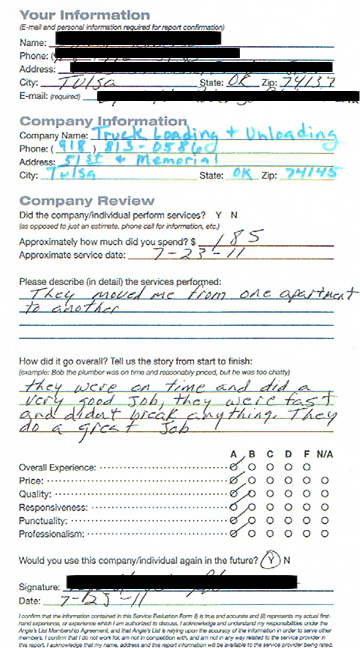 Your Information
(E-mail and personal information required for report confirmation)
Name:
Phone: (
Address:
City: Tulsa State: OK Zip: 74137
E-mail: (required)
Company Information
Company Name: Truck Loading + Unloading
Phone: (918) 813-0586
Address: 51st & Memorial
City: Tulsa State: OK Zip: 74145
Company Review
Did the company/individual perform services? Y N
(as opposed to just an estimate, phone call for information, etc.)
Approximately how much did you spend? $ 185
Approximate service date: 7-23-11
Please describe (in detail) the services performed:
They moved me from one apartment
to another
How did it go overall? Tell us the story from start to finish:
(example: Bob the plumber was on time and reasonably priced, but he was too chatty)
they were on time and did a
very good Job, they were fast
and didnt break anything. They
do a great Job
A B C D F N/A
Overall Experience:
Price:
Quality:
Responsiveness:
Punctuality:
Professionalism:
Would you use this company/individual again in the future? Y N
Signature:
Date: 7-23-11
I confirm that the information contained in this Service Evaluation Form (i) is true and accurate and (ii) represents my actual first-
hand experience, or experience which I am authorized to discuss. I acknowledge and understand my responsibilities under the
Angie's List Membership Agreement, and that Angie's List is relying upon the accuracy of the information in order to serve other
members. I confirm that I do not work for, am not in competition with, and am not in any way related to the service provider in
this report. I acknowledge that my name, address and this report information will be available to the service provider being rated.